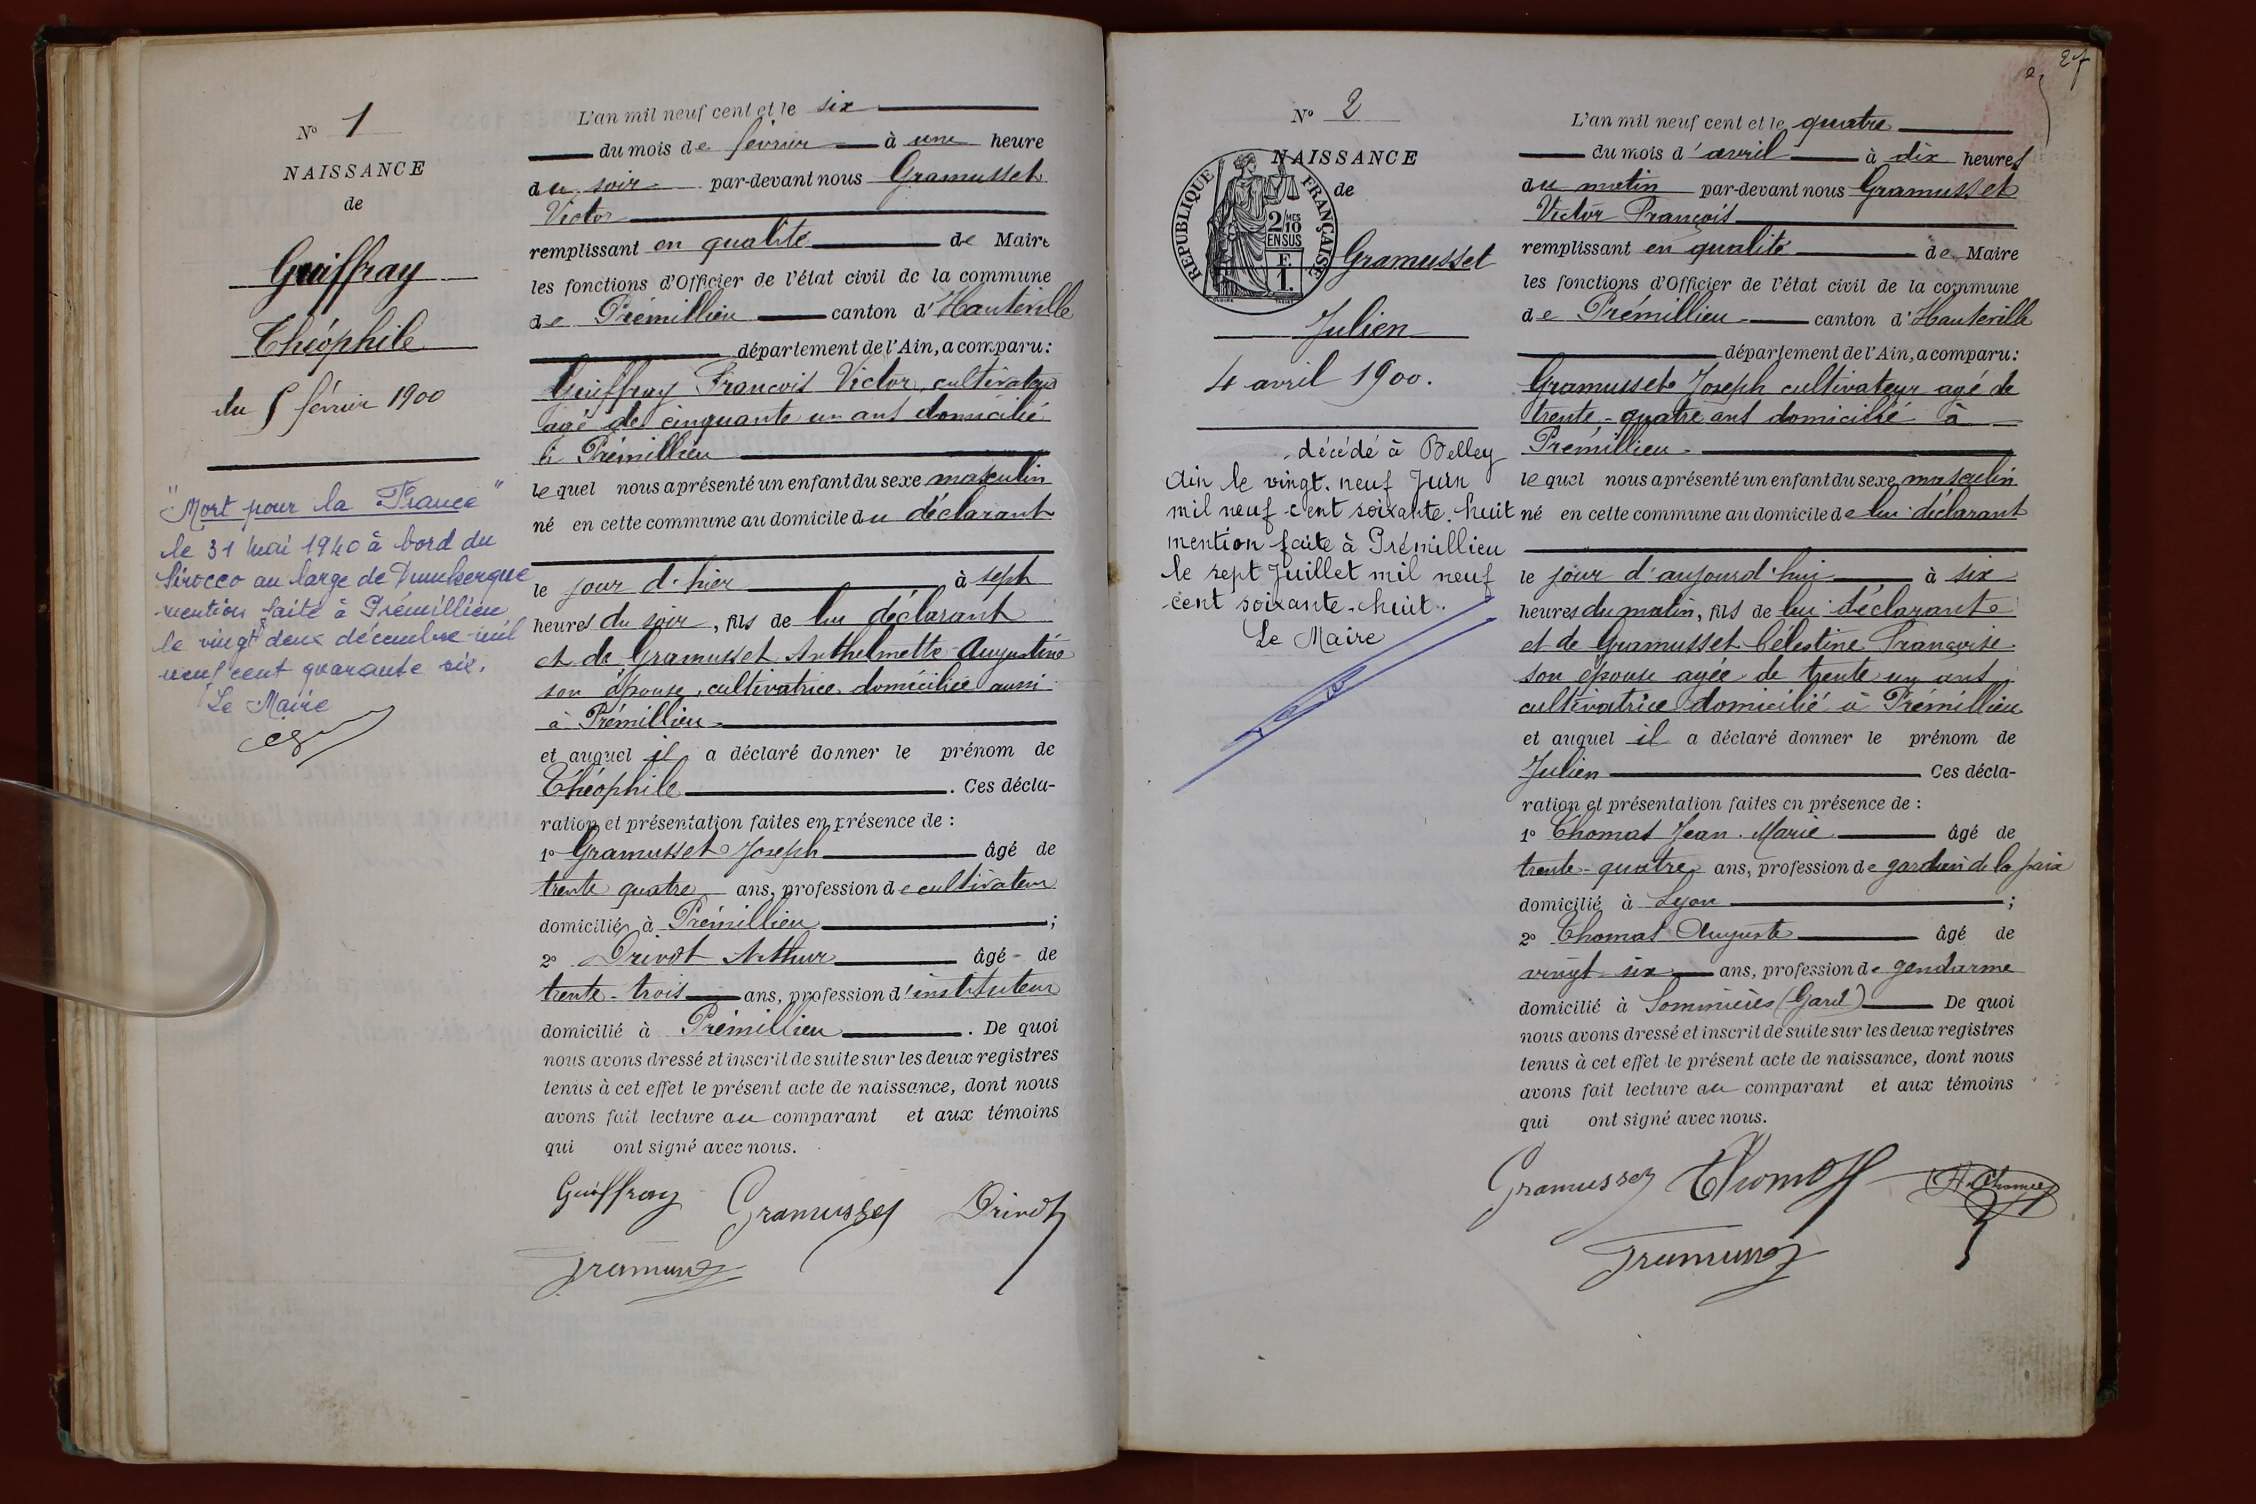 N° 1
NAISSANCE
de
Guiffray
Théophile
du 5 février 1900
"Mort pour la France"
le 31 Mai 1940 à bord du
Sirocco au large de Dunkerque
mention faite à Prémillieu
le vingt deux décembre mil
neuf cent quarante six.
Le Maire
L'an mil neuf cent et le six
du mois de février à une heure
du soir par-devant nous Gramusset
Victor
remplissant en qualité de Maire
les fonctions d'Officier de l'état civil de la commune
de Prémillieu canton d'Hauteville
département de l'Ain, a comparu:
Guiffray François Victor, cultivateur
agé de cinquante un ans domicilié
à Prémillieu
le quel nous a présenté un enfant du sexe masculin
né en cette commune au domicile du déclarant
le jour d'hier à sept
heures du soir, fils de lui déclarant
et de Gramusset Anthelmette Augustine
son épouse, cultivatrice domiciliée aussi
à Prémillieu
et auquel il a déclaré donner le prénom de
Théophile. Ces décla-
ration et présentation faites en présence de :
1° Gramusset Joseph âgé de
trente quatre ans, profession de cultivateur
domicilié à Prémillieu ;
2° Drivot Arthur âgé de
trente-trois ans, profession d'instituteur
domicilié à Prémillieu. De quoi
nous avons dressé et inscrit de suite sur les deux registres
tenus à cet effet le présent acte de naissance, dont nous
avons fait lecture au comparant et aux témoins
qui ont signé avec nous.
Guiffray Gramusset Drivot
Gramusset
27
2
N° 2
NAISSANCE
de
REPUBLIQUE FRANÇAISE
2/10 MES
EN SUS
F
1.
Gramusset
Julien
4 avril 1900.
décédé à Belley
Ain le vingt-neuf Juin
mil neuf cent soixante-huit
mention faite à Prémillieu
le sept Juillet mil neuf
cent soixante-huit.
Le Maire
L'an mil neuf cent et le quatre
du mois d'avril à dix heures
du matin par-devant nous Gramusset
Victor François
remplissant en qualité de Maire
les fonctions d'Officier de l'état civil de la commune
de Prémillieu canton d'Hauteville
département de l'Ain, a comparu:
Gramusset Joseph cultivateur agé de
trente-quatre ans domicilié à
Prémillieu
le quel nous a présenté un enfant du sexe masculin
né en cette commune au domicile de lui déclarant
le jour d'aujourd'hui à six
heures du matin, fils de lui déclarant
et de Gramusset Célestine Françoise
son épouse agée de trente un ans
cultivatrice domicilié à Prémillieu
et auquel il a déclaré donner le prénom de
Julien Ces décla-
ration et présentation faites en présence de :
1° Thomas Jean-Marie âgé de
trente-quatre ans, profession de gardien de la paix
domicilié à Lyon ;
2° Thomas Auguste âgé de
vingt-six ans, profession de gendarme
domicilié à Sommières (Gard) De quoi
nous avons dressé et inscrit de suite sur les deux registres
tenus à cet effet le présent acte de naissance, dont nous
avons fait lecture au comparant et aux témoins
qui ont signé avec nous.
Gramusset Thomas A. Thomas
Gramusset